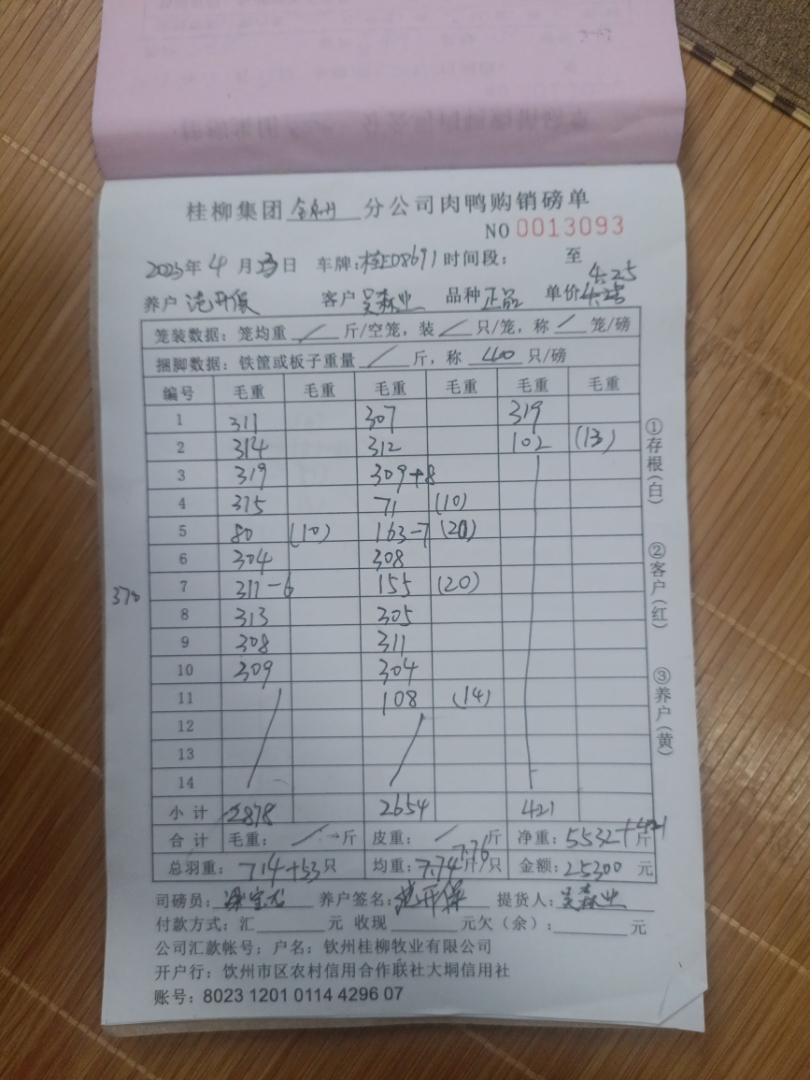 桂柳集团 分公司肉鸭购销磅单
NO 0013093
2023年 4 月 日 车牌: 桂ED8691 时间段: 至
4.25
养户 开保 客户 吴森业 品种 正品 单价 4.25
笼装数据: 笼均重 / 斤/空笼, 装 / 只/笼, 称 / 笼/磅
捆脚数据: 铁筐或板子重量 / 斤, 称 40 只/磅
编号 毛重 毛重 毛重 毛重 毛重 毛重
1 311 307 319
2 314 312 102 (13)
3 319 309+8
4 315 71 (10)
5 80 (10) 163-7 (20)
6 304 308
370
7 311-6 155 (20)
8 313 305
9 308 311
10 309 304
11 108 (14)
12
13
14
小计 2878 2654 421
合计 毛重: / 斤 皮重: / 斤 净重: 5532+421 斤
7.76
总羽重: 714+53 只 均重: 7.74 斤/只 金额: 25300 元
司磅员: 养户签名: 开保 提货人: 吴森业
付款方式: 汇 元 收现 元欠(余): 元
公司汇款帐号; 户名: 钦州桂柳牧业有限公司
开户行: 饮州市区农村信用合作联社大垌信用社
账号: 8023 1201 0114 4296 07
①存根(白)
②客户(红)
③养户(黄)